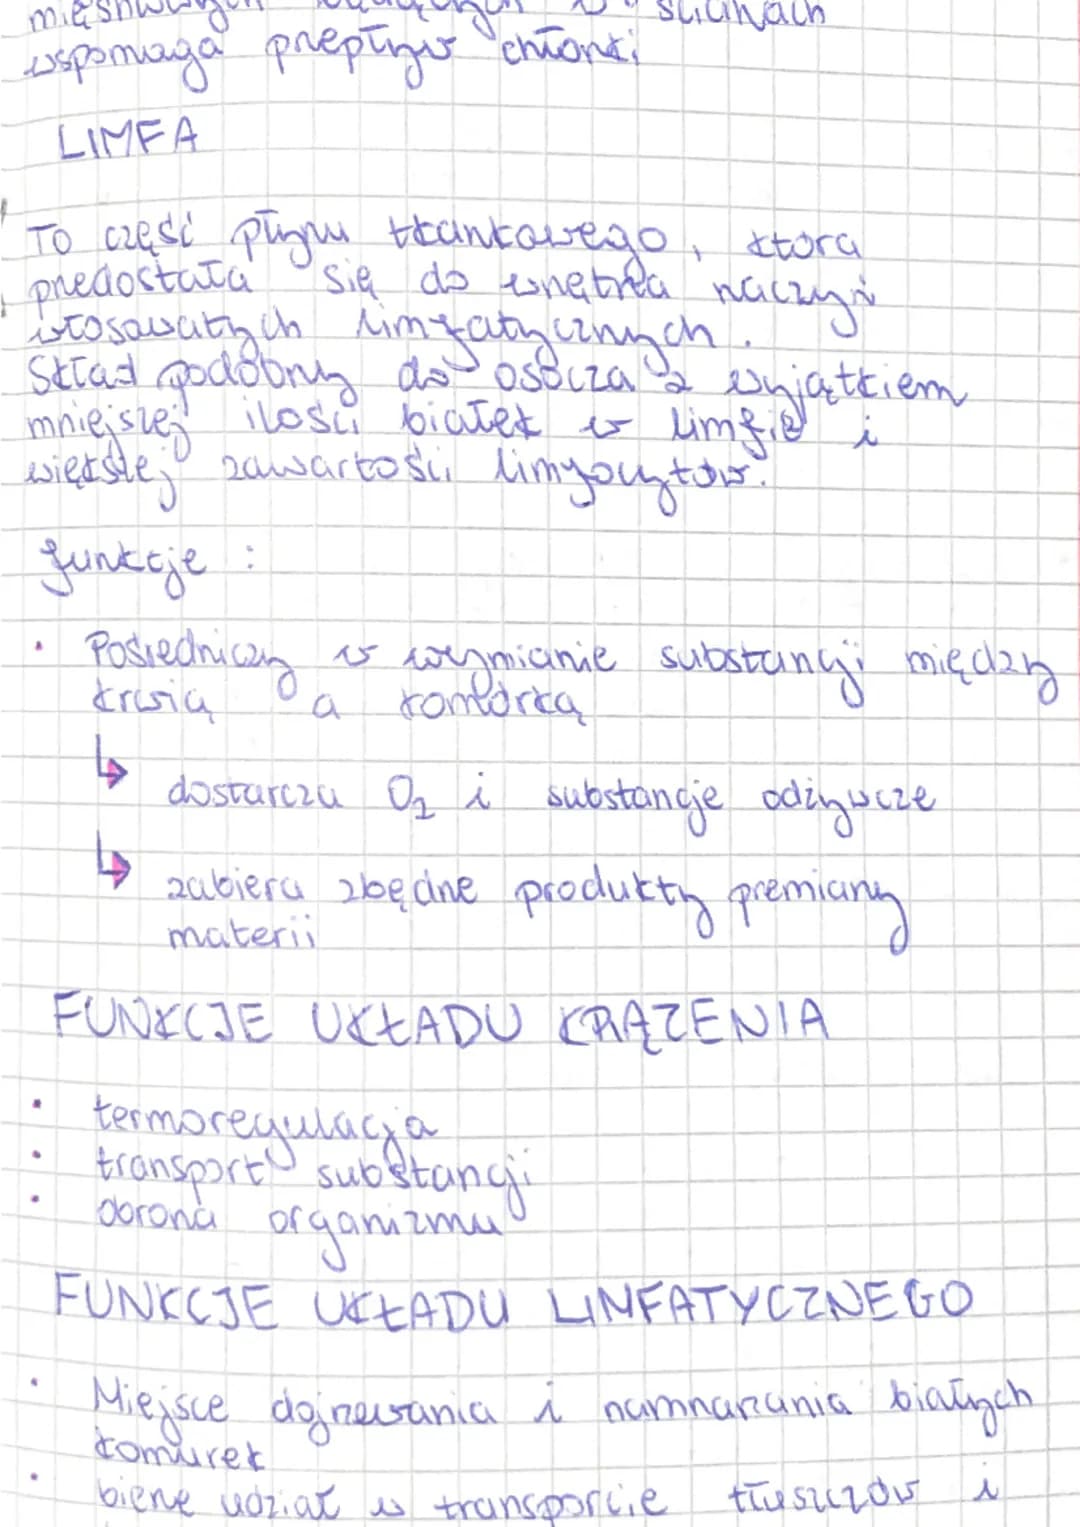 wspomaga przepływ chłonki
LIMFA
To część płynu tkankowego, która
przedostała się do wnętrza naczyń
włosowatych limfatycznych.
Skład podobny do osocza z wyjątkiem
mniejszej ilości białek w limfie i
większej zawartości limfocytów.
funkcje :
• Pośredniczy w wymianie substancji między
krwią a komórką
↳ dostarcza O₂ i substancje odżywcze
↳ zabiera zbędne produkty przemiany
materii
FUNKCJE UKŁADU KRĄŻENIA
• termoregulacja
• transport substancji
• obrona organizmu
FUNKCJE UKŁADU LIMFATYCZNEGO
• Miejsce dojrzewania i namnażania białych
komurek
• bierze udział w transporcie tłuszczów i